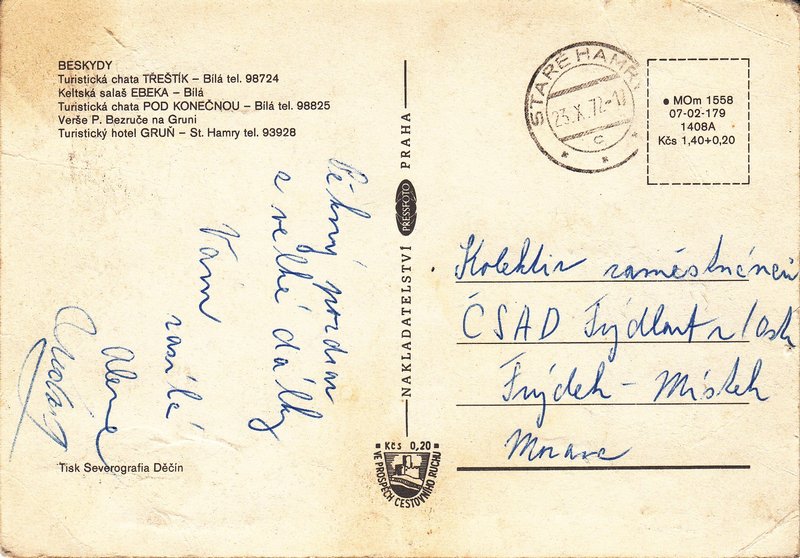 BESKYDY
Turistická chata TŘEŠTÍK – Bílá tel. 98724
Keltská salaš EBEKA – Bílá
Turistická chata POD KONEČNOU – Bílá tel. 98825
Verše P. Bezruče na Gruni
Turistický hotel GRUŇ – St. Hamry tel. 93928
Pěkný pozdrav
z velké dálky
Vám
zasílá
Alena
Tisk Severografia Děčín
NAKLADATELSTVÍ PRESSFOTO PRAHA
Kčs 0,20
VE PROSPĚCH CESTOVNÍHO RUCHU
STARÉ HAMRY
23.X.72-1
c
MOm 1558
07-02-179
1408A
Kčs 1,40+0,20
Kolektiv zaměstnanců
ČSAD Frýdlant n/Ostr
Frýdek – Místek
Morava